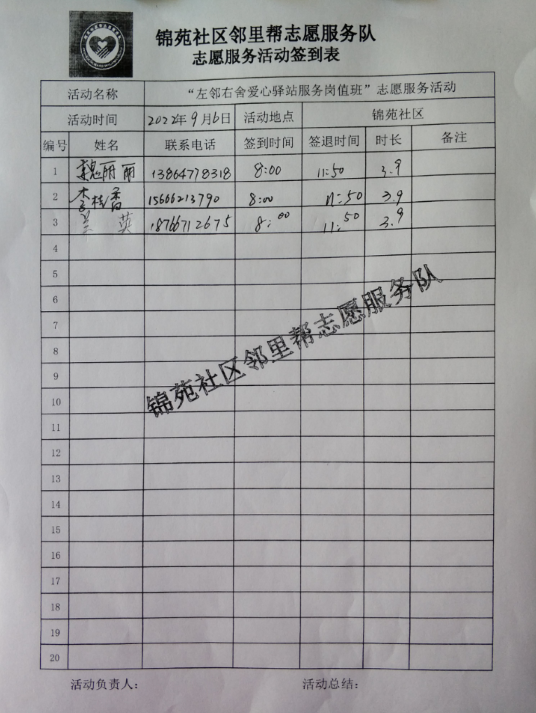 锦苑社区邻里帮志愿服务队
志愿服务活动签到表
活动名称 “左邻右舍爱心驿站服务岗值班”志愿服务活动
活动时间 2022年9月6日 活动地点 锦苑社区
编号 姓名 联系电话 签到时间 签退时间 时长 备注
1 魏丽丽 13864778318 8:00 11:50 3.9
2 李桂香 15666213790 8:00 11:50 3.9
3 兰英 18766712675 8:00 11:50 3.9
4
5
6
7
8
9
10
11
12
13
14
15
16
17
18
19
20
锦苑社区邻里帮志愿服务队
活动负责人： 活动总结：